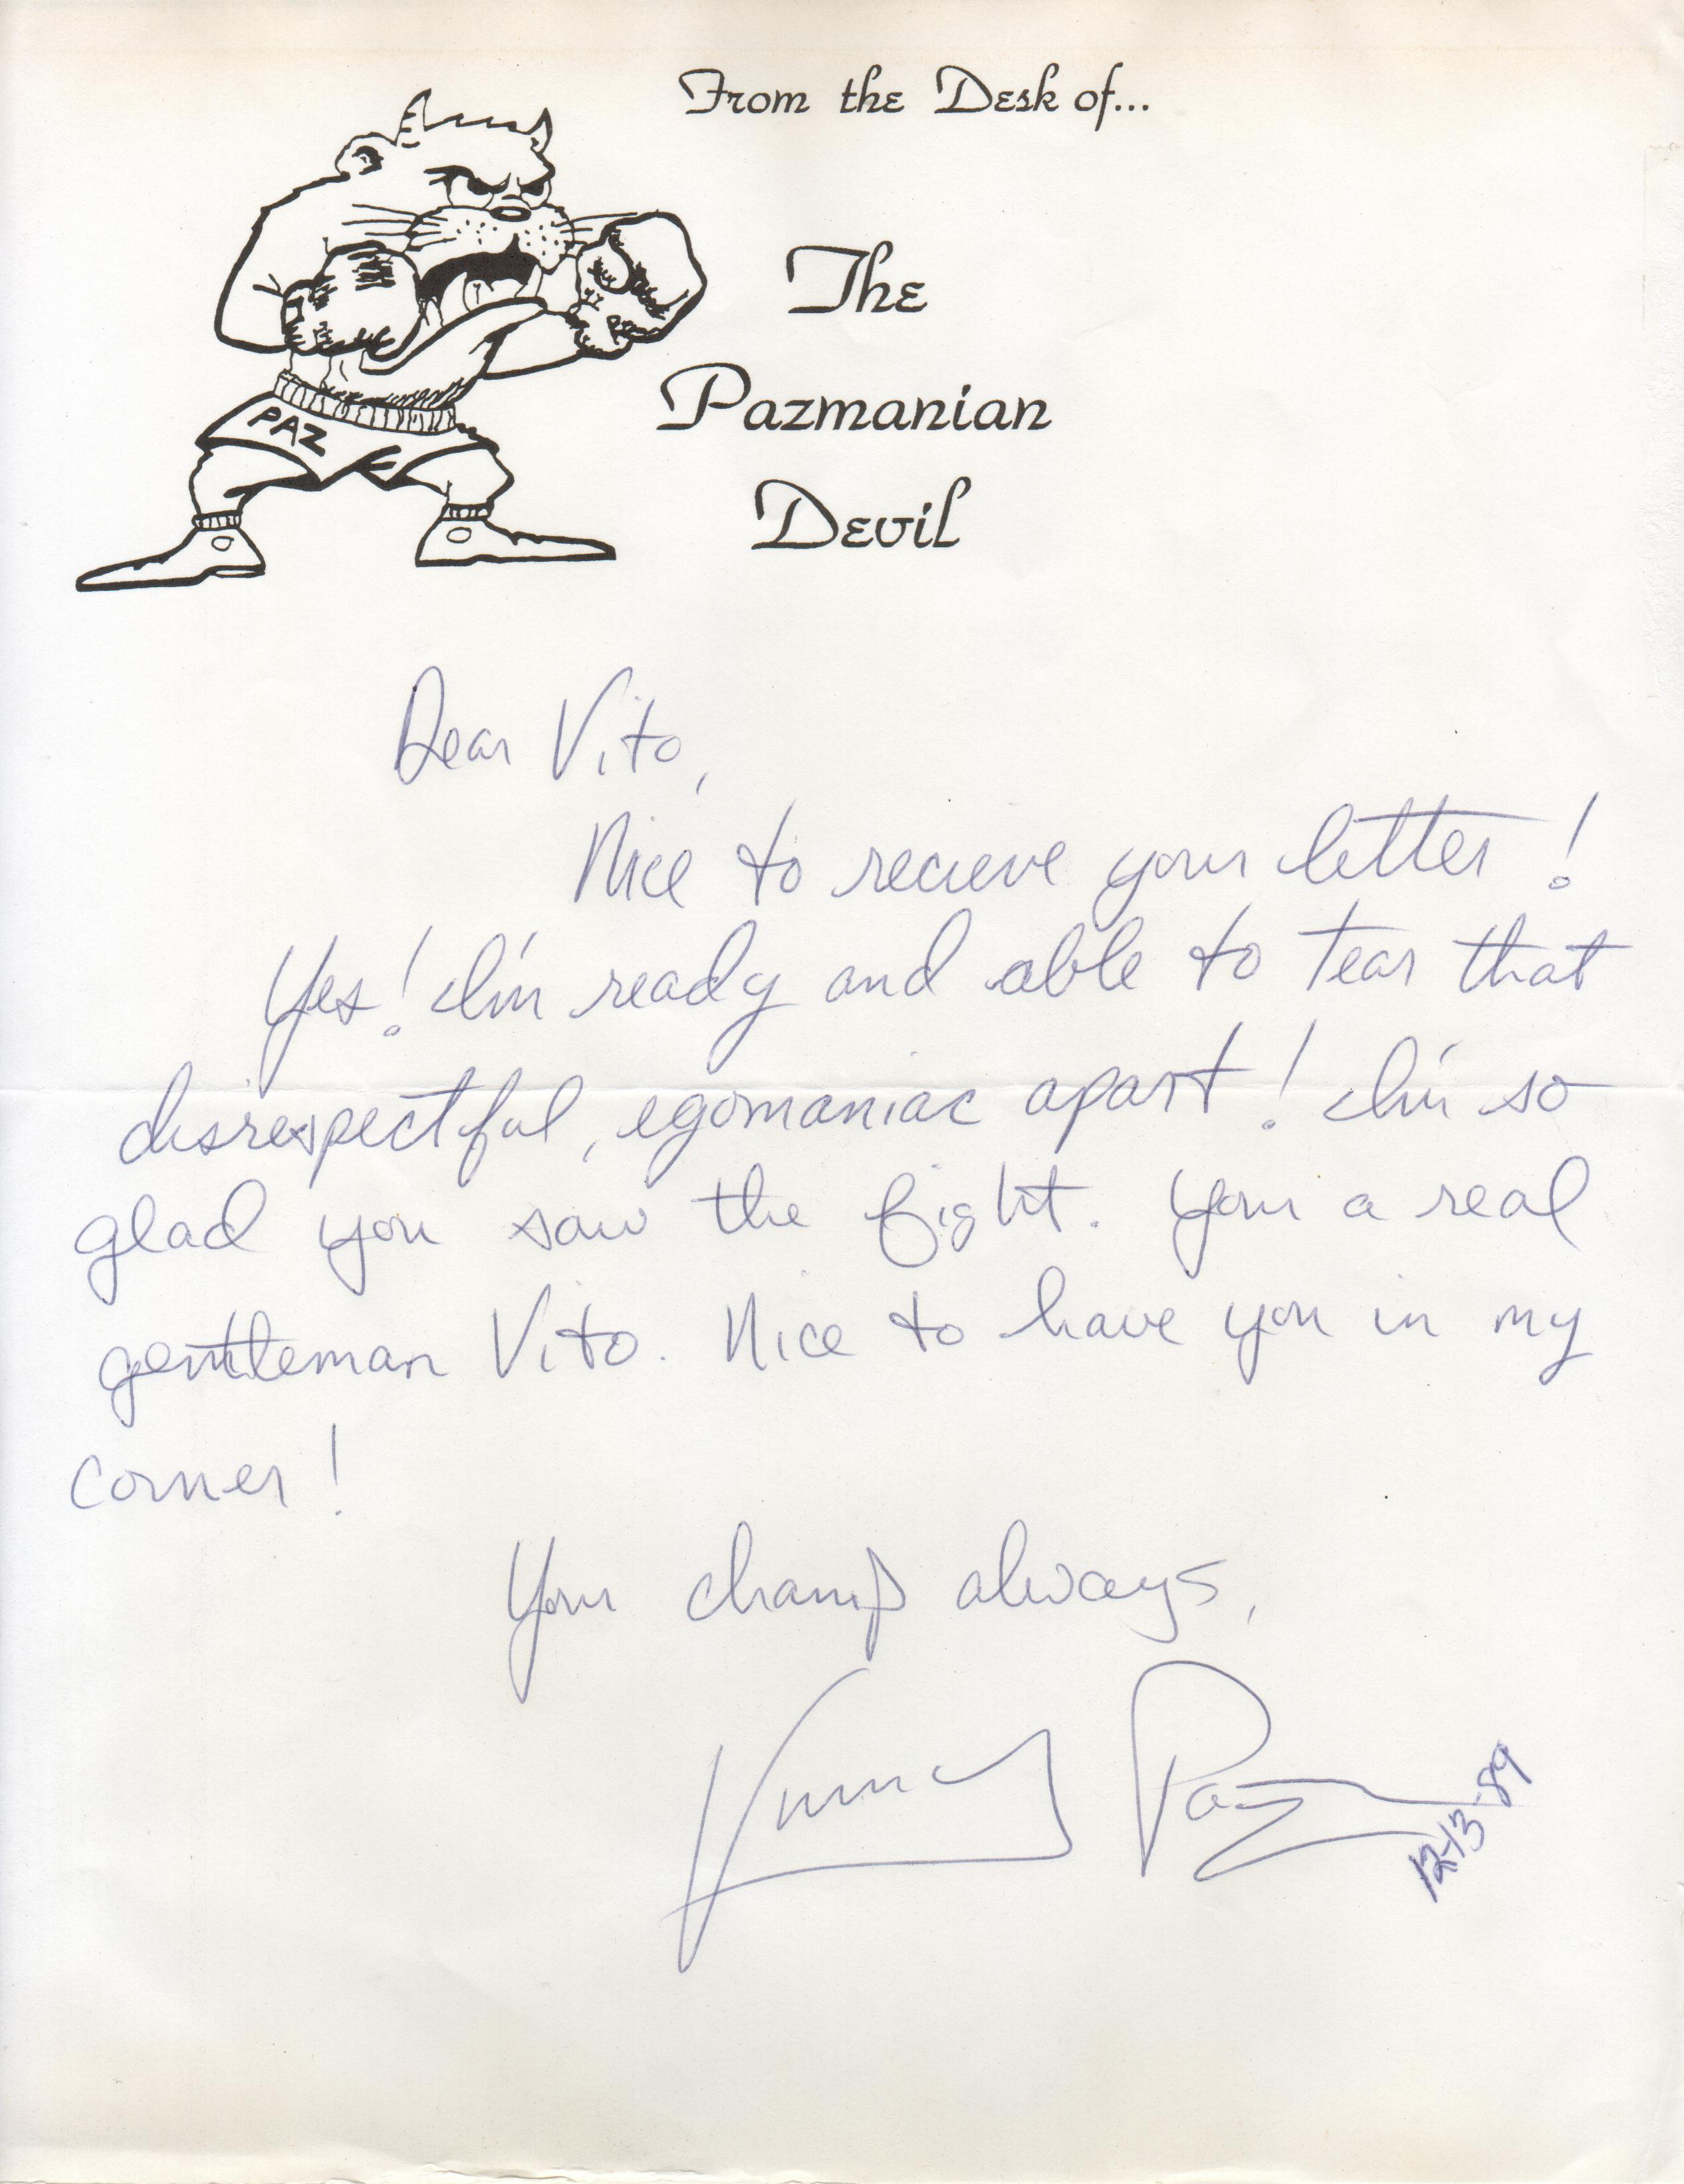 From the Desk of...
The
Pazmanian
Devil
PAZ
Dear Vito,
Nice to recieve your letter!
Yes! I'm ready and able to tear that
disrespectful, egomaniac apart! I'm so
glad you saw the fight. Your a real
gentleman Vito. Nice to have you in my
corner!
Your champ always,
Vinny Paz
12-13-89